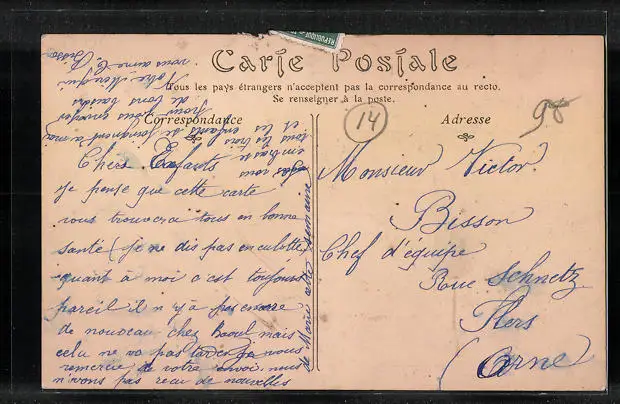 RÉPUBLIQUE
Carte Postale
Tous les pays étrangers n'acceptent pas la correspondance au recto.
Se renseigner à la poste.
Correspondance
Adresse
14
98
Chers Enfants
je pense que cette carte
vous trouvera tous en bonne
santé (je ne dis pas en culotte)
quant à moi c est toujours
pareil il n'y a pas encore
de nouveau chez Raoul mais
cela ne va pas tarder je vous
remercie de votre envoi. nous
n'avons pas reçu de nouvelles
de Marie cette semaine
vous
embrasse
tous les trois
et les enfants se joignent à moi
pour vous envoyer
de bons baisers
Votre
vous aime
Bisson
Monsieur Victor
Bisson
Chef d'équipe
Rue Schnetz
Flers
(Orne)